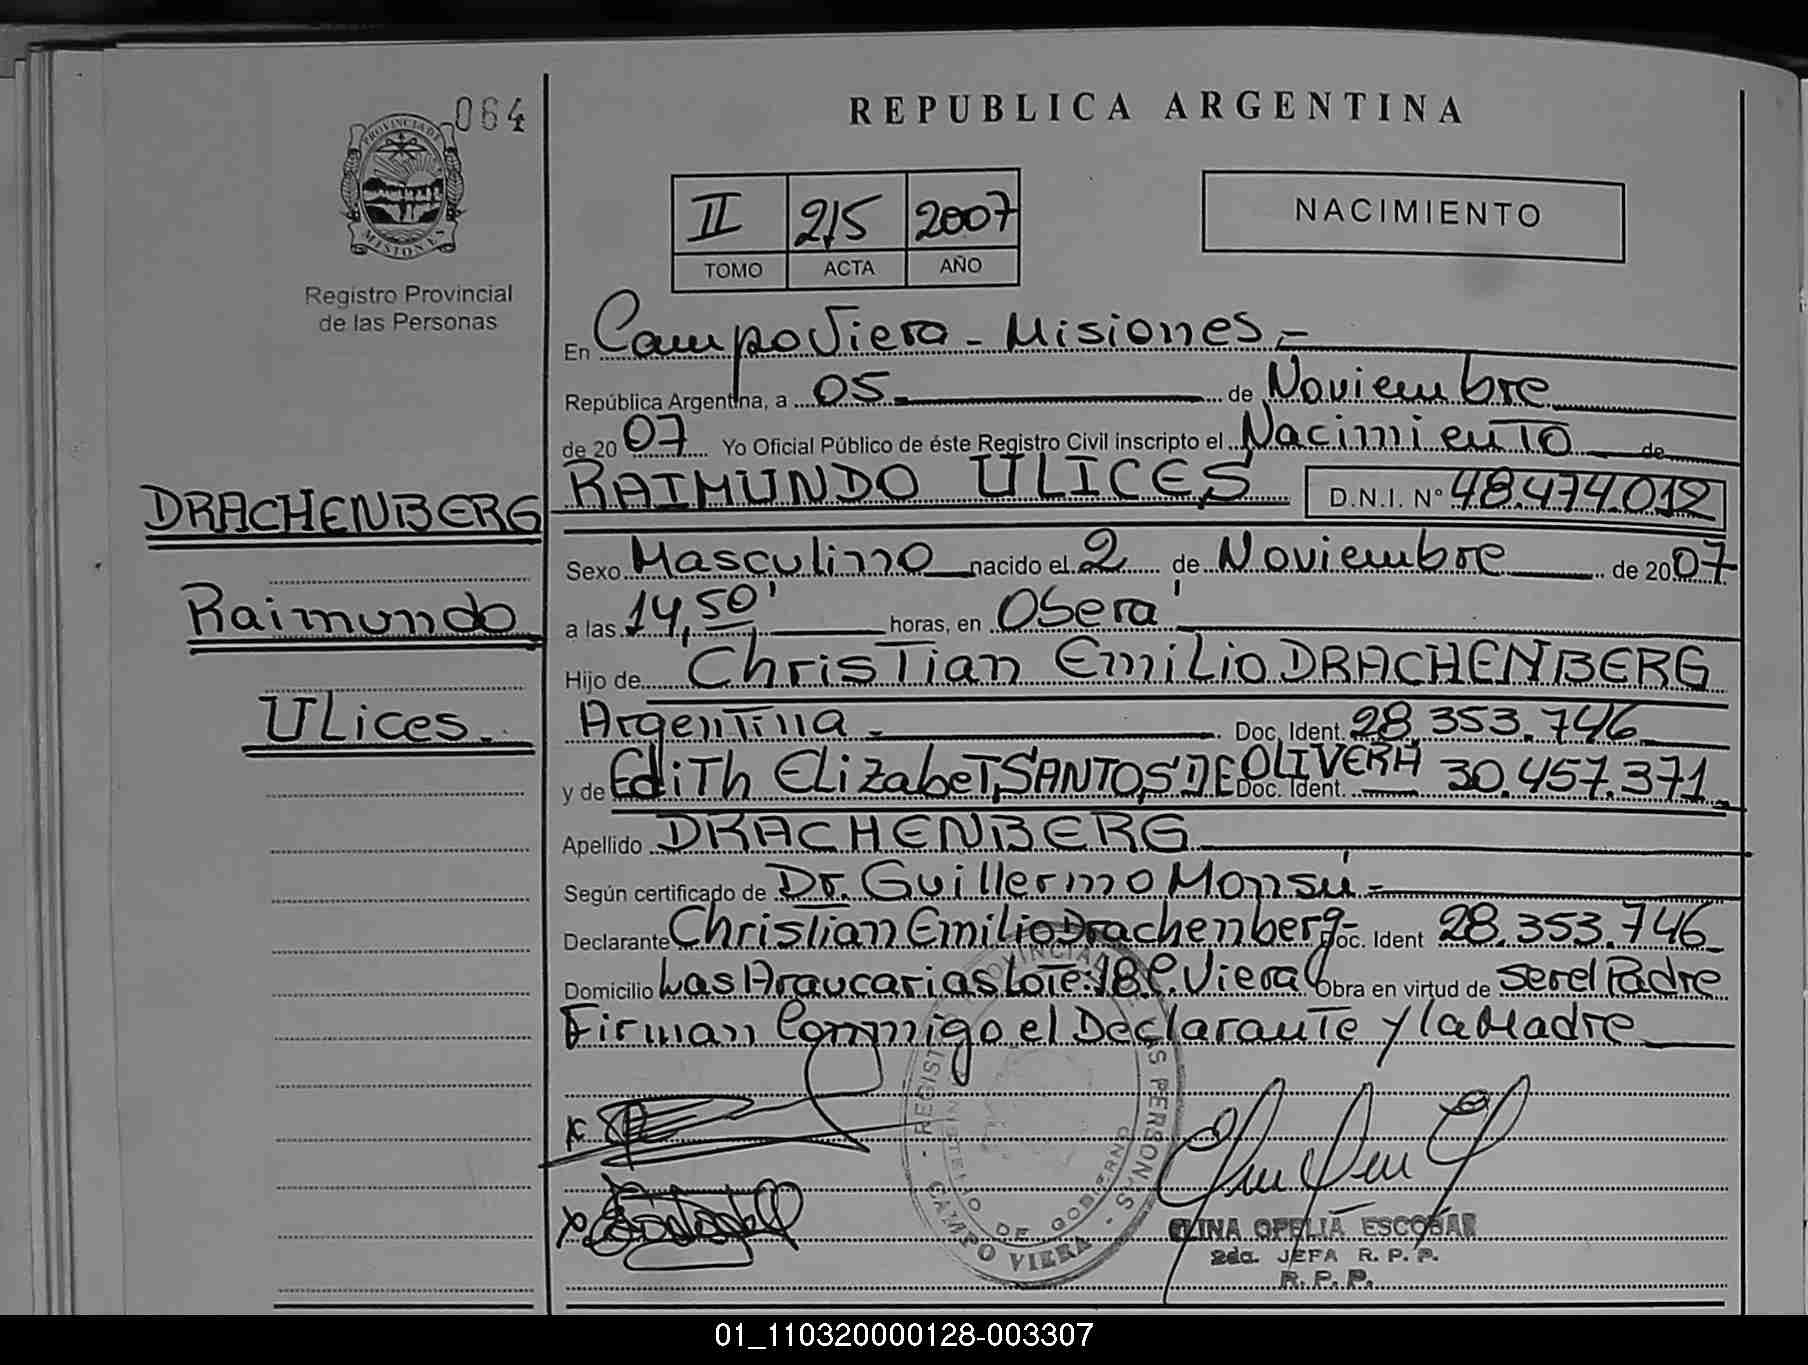 064
PROVINCIA DE
MISIONES
Registro Provincial
de las Personas
REPUBLICA ARGENTINA
II 215 2007
TOMO ACTA AÑO
NACIMIENTO
En Campo Viera - Misiones.-
República Argentina, a 05 de Noviembre
de 2007 Yo Oficial Público de éste Registro Civil inscripto el Nacimiento de
RAIMUNDO ULICES D.N.I. N° 48.474.012
DRACHENBERG
Raimundo
Ulices.
Sexo Masculino nacido el 2 de Noviembre de 2007
a las 14,50' horas, en Oberá
Hijo de Christian Emilio DRACHENBERG
Argentina.- Doc. Ident. 28.353.746
y de Edith Elizabet, SANTOS DE OLIVERA Doc. Ident. 30.457.371
Apellido DRACHENBERG
Según certificado de Dr. Guillermo Monsú.-
Declarante Christian Emilio Drachenberg- Doc. Ident 28.353.746
Domicilio Las Araucarias Lote:18 C. Viera Obra en virtud de ser el Padre
Firman Conmigo el Declarante y la Madre
REGISTRO PROVINCIAL DE LAS PERSONAS
MINISTERIO DE GOBIERNO
CAMPO VIERA
ELINA OFELIA ESCOBAR
2da. JEFA R. P. P.
R. P. P.
01_110320000128-003307